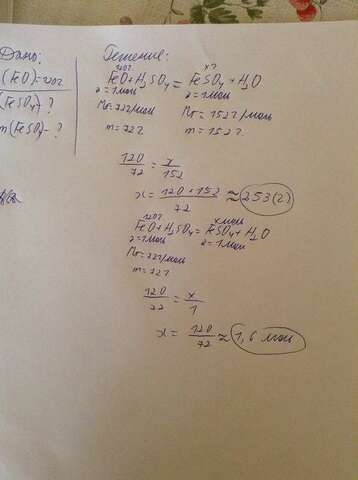 Дано:
(FeO)=120г
(FeSO4)-?
m(FeSO4)-?
Решение:
120г x?
FeO+H2SO4=FeSO4+H2O
2=1моль 2=1моль
Mr=72г/моль Mr=152г/моль
m=72г m=152г
120/72=x/152
x=120*152/72≈253(г)
120г xмоль
FeO+H2SO4=FeSO4+H2O
2=1моль 2=1моль
Mr=72г/моль
m=72г
120/72=x/1
x=120/72≈1,6 моль